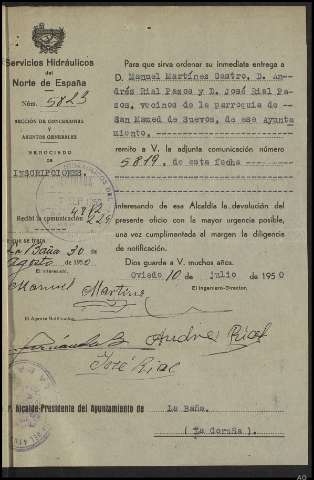 Servicios Hidráulicos
del
Norte de España
Núm. 5823
SECCIÓN DE CONCESIONES
Y
ASUNTOS GENERALES
NEGOCIADO
DE
INSCRIPCIONES
Recibí la comunicación
que se trata
La Baña 30 de
agosto de 1950
El interesado,
Manuel Martínez
El Agente Notificador,
Fernández
Andres Rial
José Rial
Para que sirva ordenar su inmediata entrega a
D. Manuel Martínez Castro, D. An-
drés Rial Pazos y D. José Rial Pa-
zos, vecinos de la parroquia de --
San Mamed de Suevos, de ese Ayunta
miento,
remito a V. la adjunta comunicación número
5819, de esta fecha
interesando de esa Alcaldía la devolución del
presente oficio con la mayor urgencia posible,
una vez cumplimentada al margen la diligencia
de notificación.
Dios guarde a V. muchos años.
Oviedo 10 de julio de 1950
El Ingeniero-Director,
Alcalde-Presidente del Ayuntamiento de La Baña.
(La Coruña).